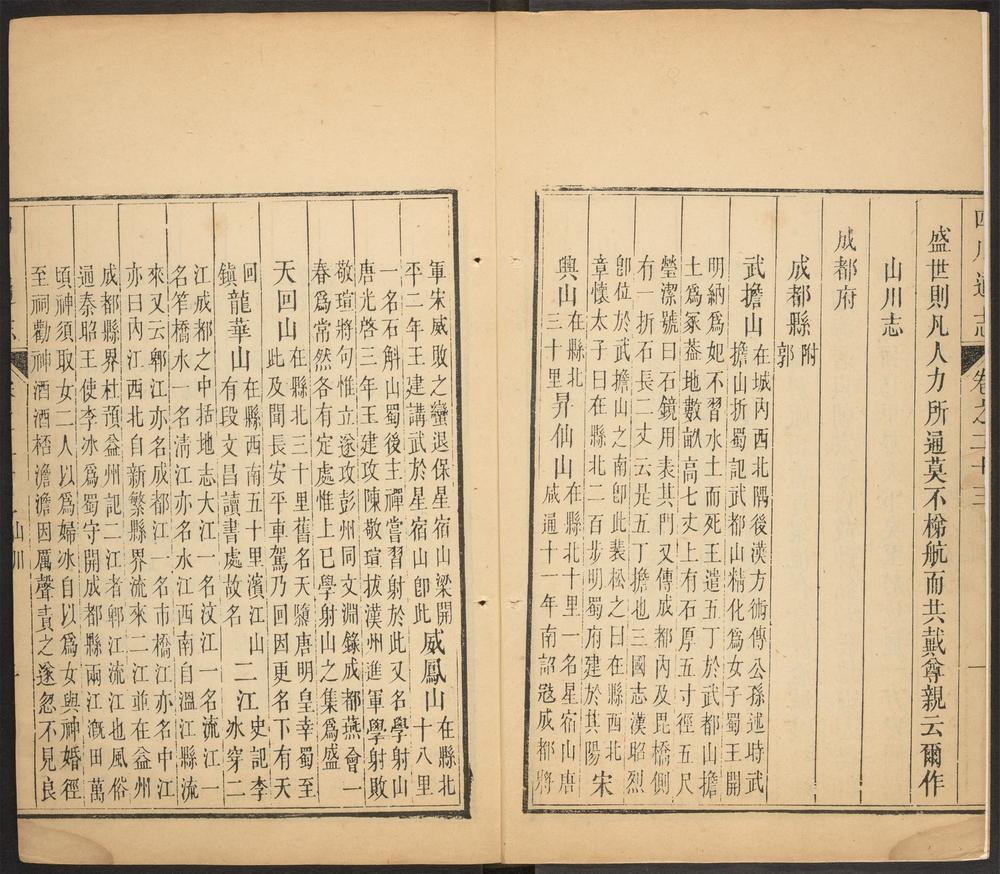 四川通志 卷之二十三 一
盛世則凡人力所通莫不梯航而共戴尊親云爾作
山川志
成都府
成都縣附
郭
武擔山在城內西北隅後漢方術傳公孫述時武
擔山折蜀記武都山精化爲女子蜀王開
明納爲妃不習水土而死王遣五丁於武都山擔
土爲冢葢地數畝高七丈上有石厚五寸徑五尺
瑩潔號曰石鏡用表其門又傳成都內及毘橋側
有一折石長二丈云是五丁擔也三國志漢昭烈
卽位於武擔山之南卽此裴松之曰在縣西北
章懷太子曰在縣北二百步明蜀府建於其陽宋
興山在縣北
三十里昇仙山在縣北十里一名星宿山唐
咸通十一年南詔寇成都將
軍宋威敗之蠻退保星宿山梁開
平二年王建講武於星宿山卽此威鳳山在縣北
十八里
一名石斛山蜀後主禪嘗習射於此又名學射山
唐光啓三年王建攻陳敬瑄拔漢州進軍學射敗
敬瑄將句惟立遂攻彭州同文淵錄成都燕會一
春爲常然各有定處惟上巳學射山之集爲盛
天回山在縣北三十里舊名天隳唐明皇幸蜀至
此及聞長安平車駕乃回因更名下有天
回
鎭龍華山在縣西南五十里濱江山
有段文昌讀書處故名二江史記李
冰穿二
江成都之中括地志大江一名汶江一名流江一
名笮橋水一名淸江亦名水江西南自溫江縣流
來又云郫江亦名成都江一名市橋江亦名中江
亦曰內江西北自新繁縣界流來二江並在益州
成都縣界杜預益州記二江者郫江流江也風俗
通秦昭王使李冰爲蜀守開成都縣兩江漑田萬
頃神須取女二人以爲婦冰自以爲女與神婚徑
至祠勸神酒酒桮澹澹因厲聲責之遂忽不見良
山川